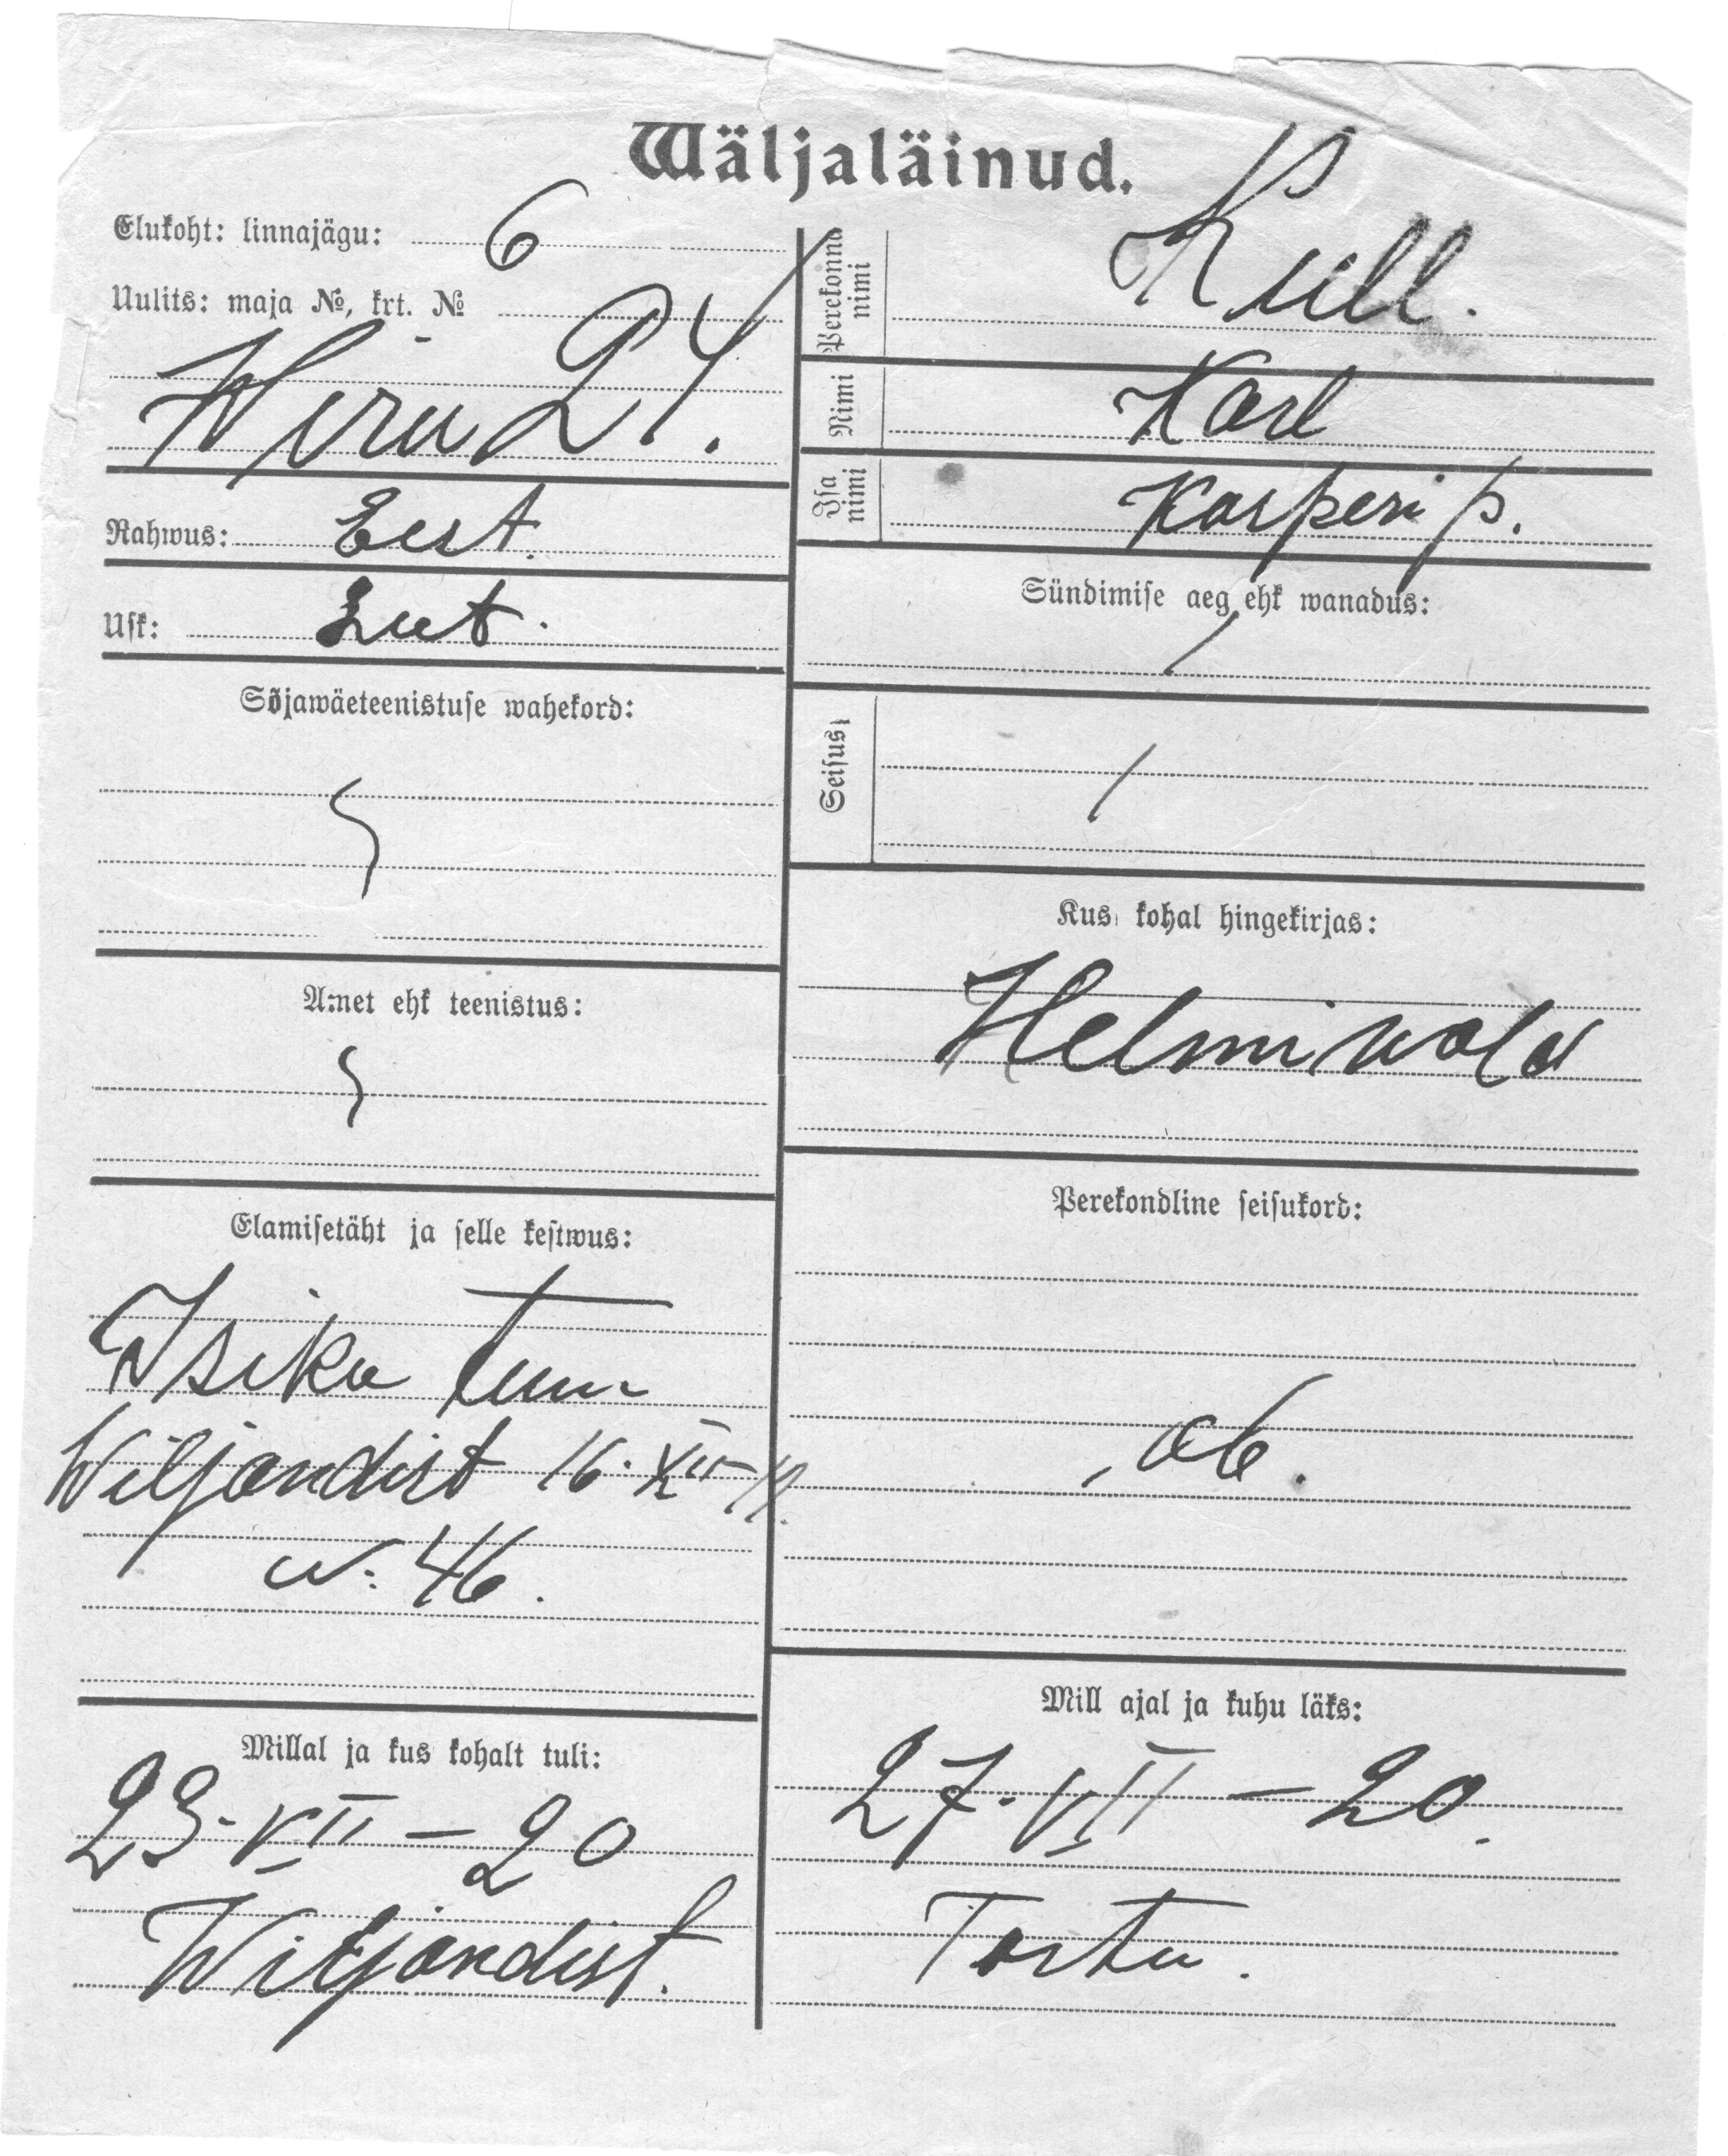 Wäljaläinud.
Elukoht: linnajägu: 6
Uulits: maja №, krt. №
Wiru 24.
Rahwus: Eest.
Usk: Lut.
Sõjawäeteenistuse wahekord:
Amet ehk teenistus:
Elamisetäht ja selle kestwus:
Isiku tunn
Wiljandist 16. XII-19.
N: 46.
Millal ja kus kohalt tuli:
23. VII – 20
Wiljandist.
Perekonna nimi Kull.
Nimi Karl
Isa nimi Kasperi p.
Sündimise aeg ehk wanadus:
Seisus
Kus kohal hingekirjas:
Helmi wald
Perekondline seisukord:
ab.
Mill ajal ja kuhu läks:
27. VII – 20.
Tartu.